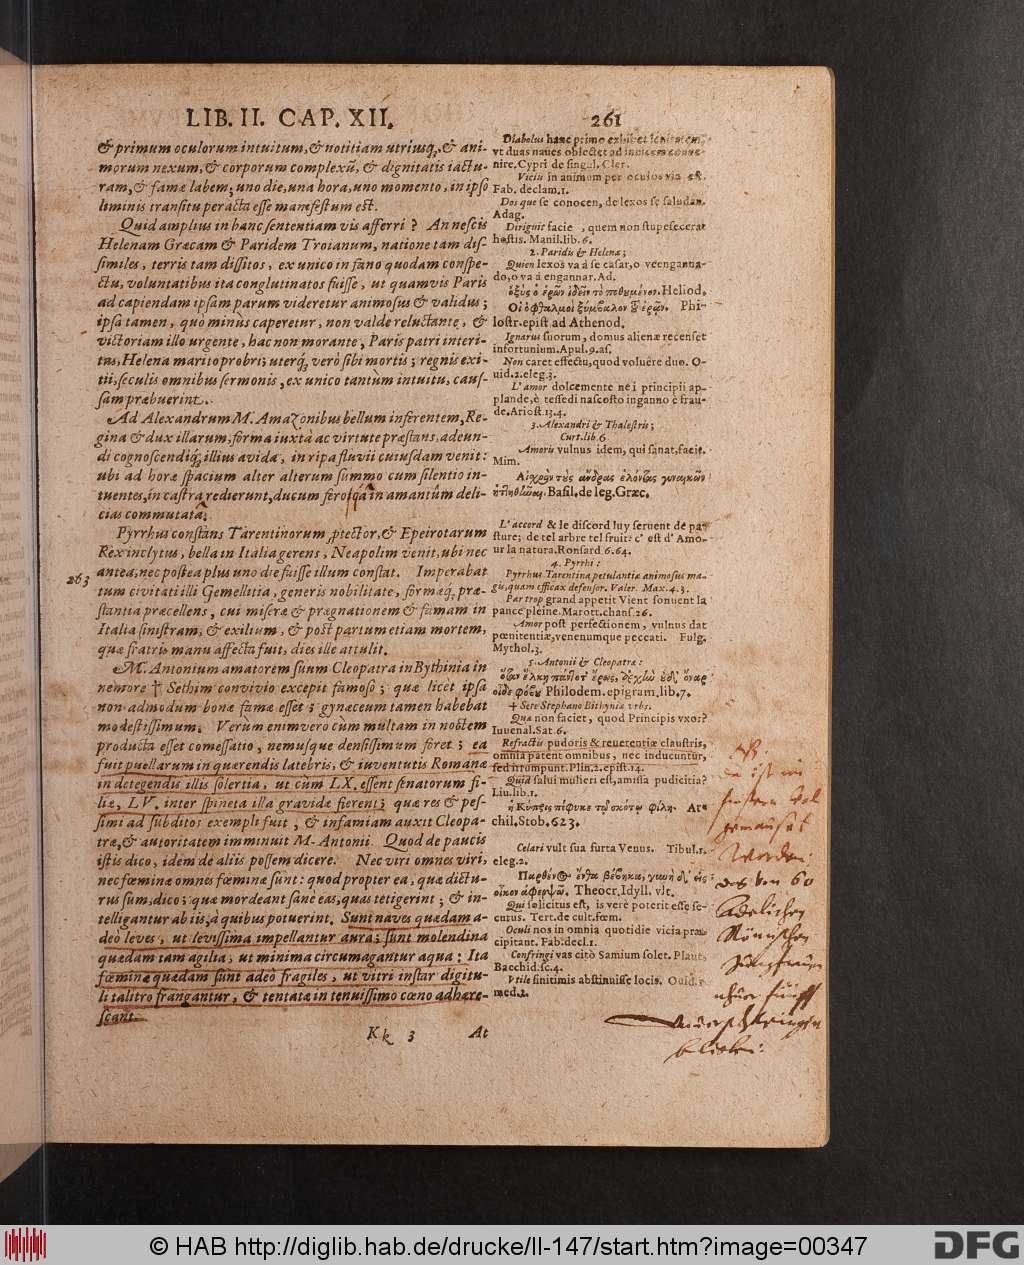 LIB. II. CAP. XII. 261
& primum oculorum intuitum, & notitiam utriusq;, & ani-
morum nexum, & corporum complexũ, & dignitatis iactu-
ram, & famæ labem; uno die, una hora, uno momento, in ipso
liminis transitu peractæ esse manifestum est.
Quid amplius in hanc sententiam vis afferri? An nescis
Helenam Græcam & Paridem Troianum, natione tam dis-
similes, terris tam dissitos, ex unico in fano quodam conspe-
ctu, voluntatibus ita conglutinatos fuisse, ut quamvis Paris
ad capiendam ipsam parum videretur animosus & validus;
ipsa tamen, quò minùs caperetur, non valde reluctante, &
victoriam illo urgente, hac non morante, Paris patri interi-
tus, Helena marito probri; uterq; verò sibi mortis; regnis exi-
tii, seculis omnibus sermonis, ex unico tantùm intuitu, caus-
sam præbuerint.
Ad Alexandrum M. Amazonibus bellum inferentem, Re-
gina & dux illarum, forma iuxtà ac virtute præstans, adeun-
di cognoscendiq; illius avida, in ripa fluvii cuiusdam venit:
ubi ad horæ spacium alter alterum summo cum silentio in-
tuentes, in castra redierunt, ducum ferosqã in amantûm deli-
cias commutatâ.
Pyrrhus constans Tarentinorum ptector, & Epeirotarum
Rex inclytus, bella in Italia gerens, Neapolim venit, ubi nec
263 antea, nec postea plus uno die fuisse illum constat. Imperabat
tum civitati illi Gemellitia, generis nobilitate, formæq; præ-
stantia præcellens, cui miseræ & prægnationem & famam in
Italia sinistram, & exilium, & post partum etiam mortem,
quæ fratris manu affecta fuit, dies ille attulit.
M. Antonium amatorem suum Cleopatra in Bythinia in
nemore † Sethim convivio excepit famoso; quæ licèt ipsa
non admodum bonæ famæ esset; gynæceum tamen habebat
modestissimum. Verùm enimvero cùm multam in noctem
producta esset comessatio, nemusque densissimum foret; ea
fuit puellarum in quærendis latebris, & iuventutis Romanæ
in detegendis illis solertia, ut cùm LX. essent senatorum fi-
liæ, LV. inter spineta illa gravidæ fierent; quæ res & pes-
simi ad subditos exempli fuit, & infamiam auxit Cleopa-
træ, & autoritatem imminuit M. Antonii. Quod de paucis
istis dico, idem de aliis possem dicere. Nec viri omnes viri,
nec fœminæ omnes fœminæ sunt: quod propter ea, quæ dictu-
rus sum, dico: quæ mordeant sanè eas, quas tetigerint; & in-
telligantur ab iis, à quibus potuerint. Sunt naves quædam a-
deò leves, ut levissima impellantur aura; sunt molendina
quædam tam agilia, ut minima circumagantur aqua: Ita
fœminæ quædam sunt adeò fragiles, ut vitri instar digitu-
li talitro frangantur, & tentatæ in tenuissimo cœno adhære-
scant.
Kk 3 At
Diabolus hanc primo exhibet
vt duas naues oblectet ad inuicem conue-
nire. Cypri de singul. Cler.
Vitiis in animum per oculos via est.
Fab. declam. 1.
Dos que se conocen, de lexos se saludan.
Adag.
Diriguit facie, quem non stupefecerat
hostis. Manil. lib. 6.
2. Paridis & Helenæ;
Quien lexos va á se casar, o ve enganna-
do, o va á engannar. Ad.
Heliod.
Phi-
lostr. epist ad Athenod.
Ignarus suorum, domus alienæ recenset
infortunium. Apul. 9. as.
Non caret effectu, quod voluêre duo. O-
uid. 2. eleg. 3.
L'amor dolcemente nei principii ap-
plande, e tessedi nascosto inganno è frau-
de. Ariost. 13. 4.
3. Alexandri & Thalestris;
Curt. lib. 6
Amoris vulnus idem, qui sanat, facit.
Mim.
Basil. de leg. Græc.
L'accord & le discord luy seruent de pa-
sture; de tel arbre tel fruit: c'est d'Amo-
ur la natura. Ronsard 6. 64.
4. Pyrrhi:
Pyrrhus Tarentinæ petulantiæ animosus ma-
gis, quam efficax defensor. Valer. Max. 4. 3.
Par trop grand appetit Vient souuent la
pance pleine. Marott. chans. 26.
Amor post perfectionem, vulnus dat
pœnitentiæ, venenumque peccati. Fulg.
Mythol. 3.
5. Antonii & Cleopatræ:
Philodem. epigram, lib. 7.
† Sete Stephano Bithyniæ vrbs.
Quæ non faciet, quod Principis vxor?
Iuuenal. Sat. 6.
Refractis pudoris & reuerentiæ claustris,
omnia patent omnibus, nec inducuntur,
sed irrumpunt. Plin. 2. epist. 14.
Quid salui mulieri est, amissa pudicitia?
Liu. lib. 1.
ἡ Κύπρις πέφυκε τῷ σκότῳ φίλη. Ar-
chil. Stob. 623.
Celari vult sua furta Venus. Tibul. 1.
eleg. 2.
Theocr. Idyll. vlt.
Qui solicitus est, is verè poterit esse se-
curus. Tert. de cult. fœm.
Oculi nos in omnia quotidie vicia præ-
cipitant. Fab. decl. 1.
Confringi vas citò Samium solet. Plaut.
Bacchid. sc. 4.
Vtile finitimis abstinuisse locis. Ouid. r
med. 2.
NB.
worden:
das von 60
Adelichen
Römischen
Jungfrauen
© HAB http://diglib.hab.de/drucke/ll-147/start.htm?image=00347
DFG